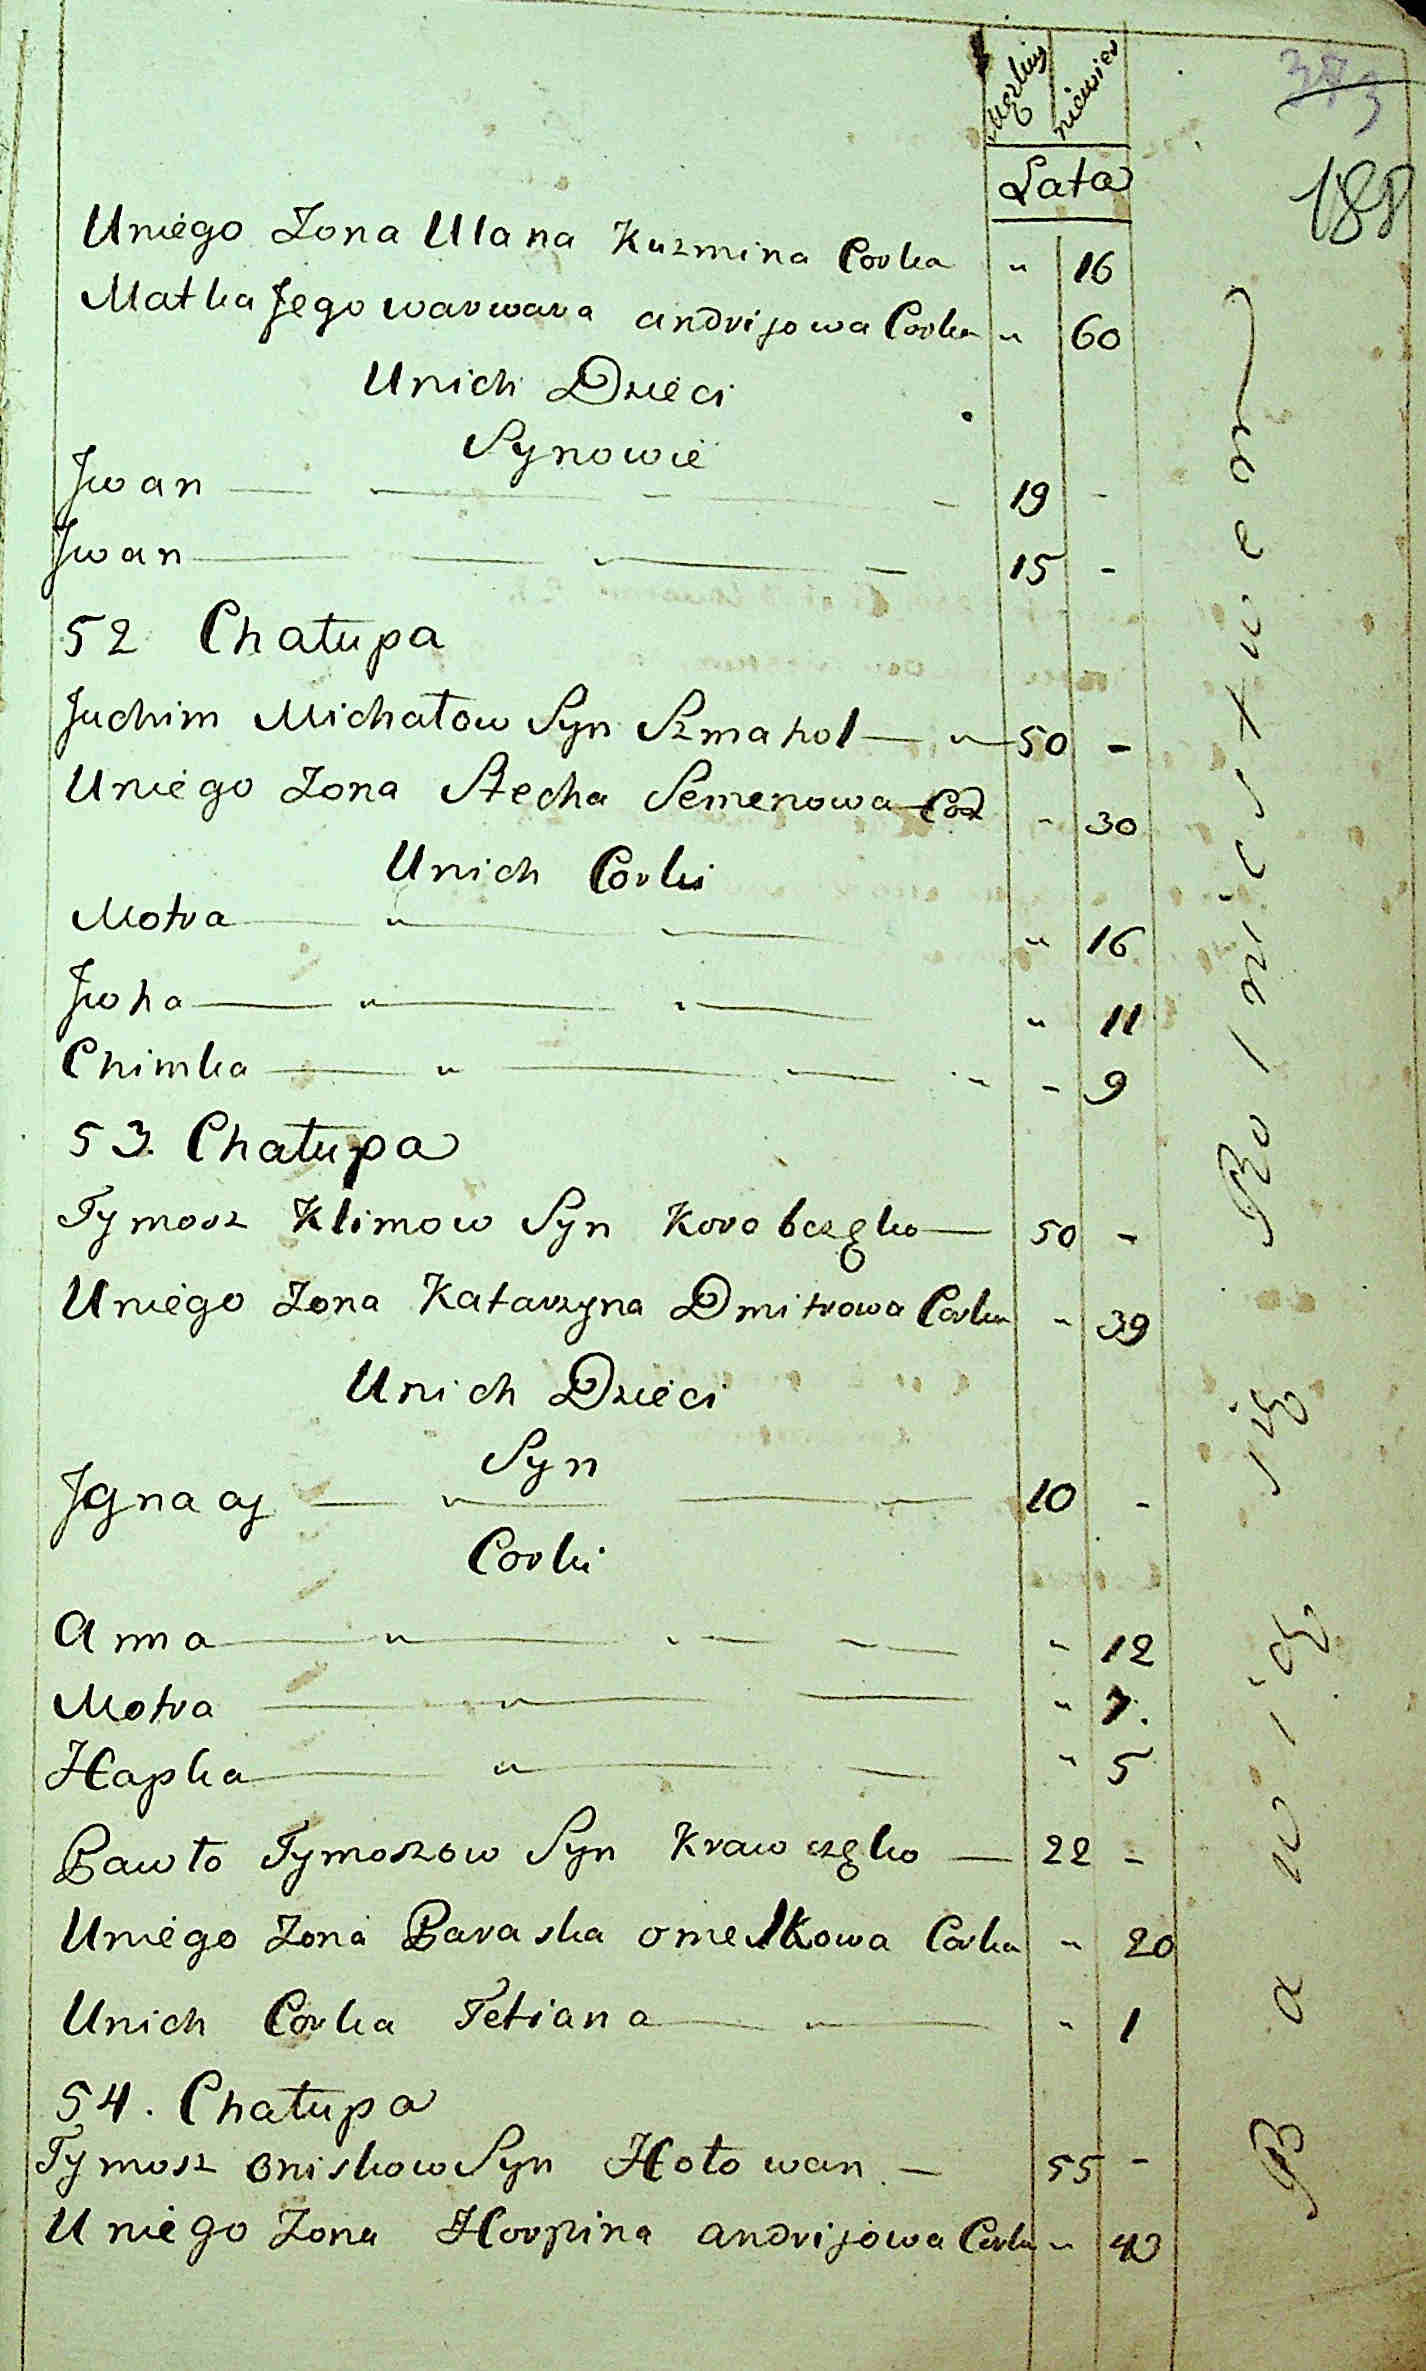 373
188
Męzkiey niewies
Lata
Uniego Zona Ulana Kuzmina Corka " 16
Matka Jego warwara andrijowa Corka " 60
Unich Dzieci
Synowie
Jwan 19 -
Jwan 15 -
52 Chałupa
Juchim Michałow Syn Szmahol 50 -
Uniego Zona Stecha Semenowa Cor - 30
Unich Corki
Motra " 16
Jwha " 11
Chimka - 9
53. Chałupa
Tymosz Klimow Syn Korobczęko 50 -
Uniego Zona Katarzyna Dmitrowa Corka " 39
Unich Dzieci
Syn
Jgnacy 10 -
Corki
Anna " 12
Motra " 7.
Hapka " 5
Pawło Tymoszow Syn Krawczęko 22 -
Uniego Zona Paraska omelkowa Corka " 20
Unich Corka Tetiana " 1
54. Chałupa
Tymosz Oniskow Syn Hołowan 55 -
Uniego Zona Horpina andrijowa Corka " 43
Bawią się Rolnictwem